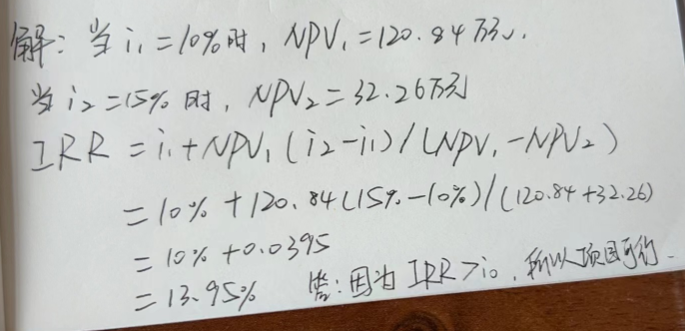 解：当 i₁=10%时，NPV₁=120.84万元.
当 i₂=15% 时，NPV₂=32.26万元
IRR = i₁+NPV₁(i₂-i₁)/(NPV₁-NPV₂)
=10%+120.84(15%-10%)/(120.84+32.26)
= 10% +0.0395
= 13.95% 答：因为 IRR>i₀，所以项目可行.